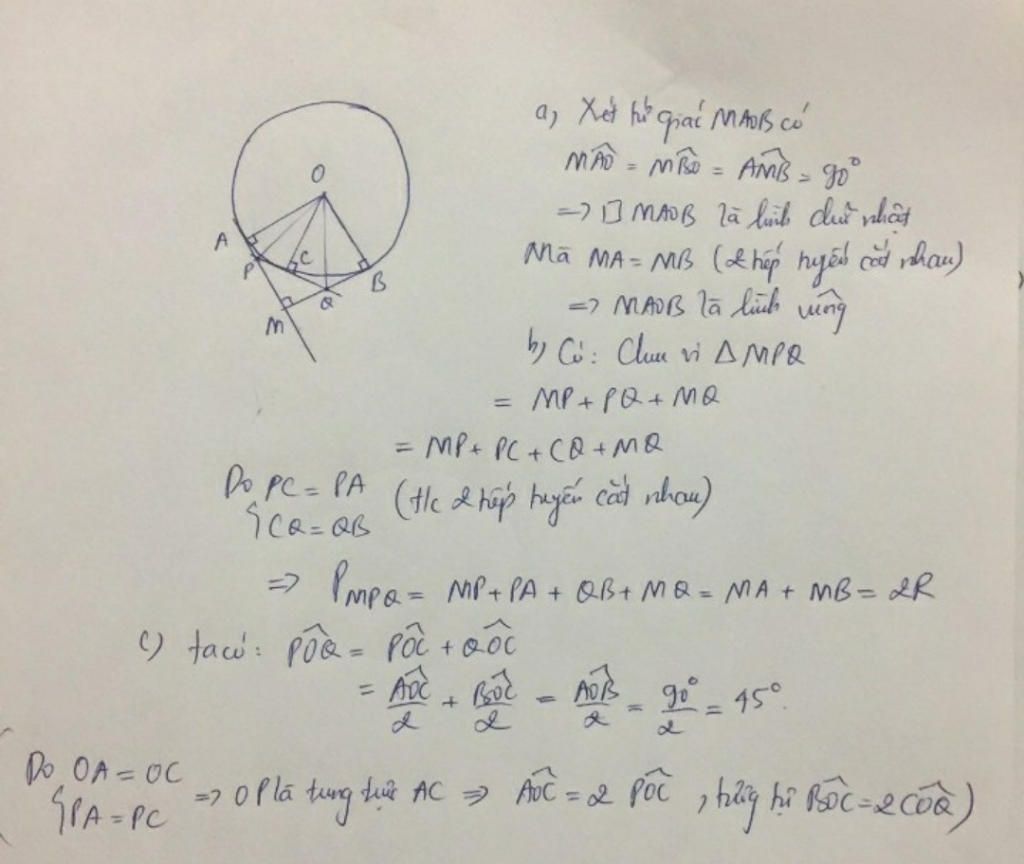 O
A
P
C
B
Q
M
a) Xét tứ giác MAOB có
MÂO = MB̂O = AM̂B = 90°
=> □ MAOB là hình chữ nhật
Mà MA = MB (2 tiếp tuyến cắt nhau)
=> MAOB là hình vuông
b) Có: Chu vi Δ MPQ
= MP + PQ + MQ
= MP + PC + CQ + MQ
Do { PC = PA
CQ = QB (t/c 2 tiếp tuyến cắt nhau)
=> P_MPQ = MP + PA + QB + MQ = MA + MB = 2R
c) ta có: PÔQ = PÔC + QÔC
= AÔC/2 + BÔC/2 = AÔB/2 = 90°/2 = 45°.
( Do { OA = OC
PA = PC => OP là trung trực AC => AÔC = 2 PÔC , tương tự BÔC = 2CÔQ )